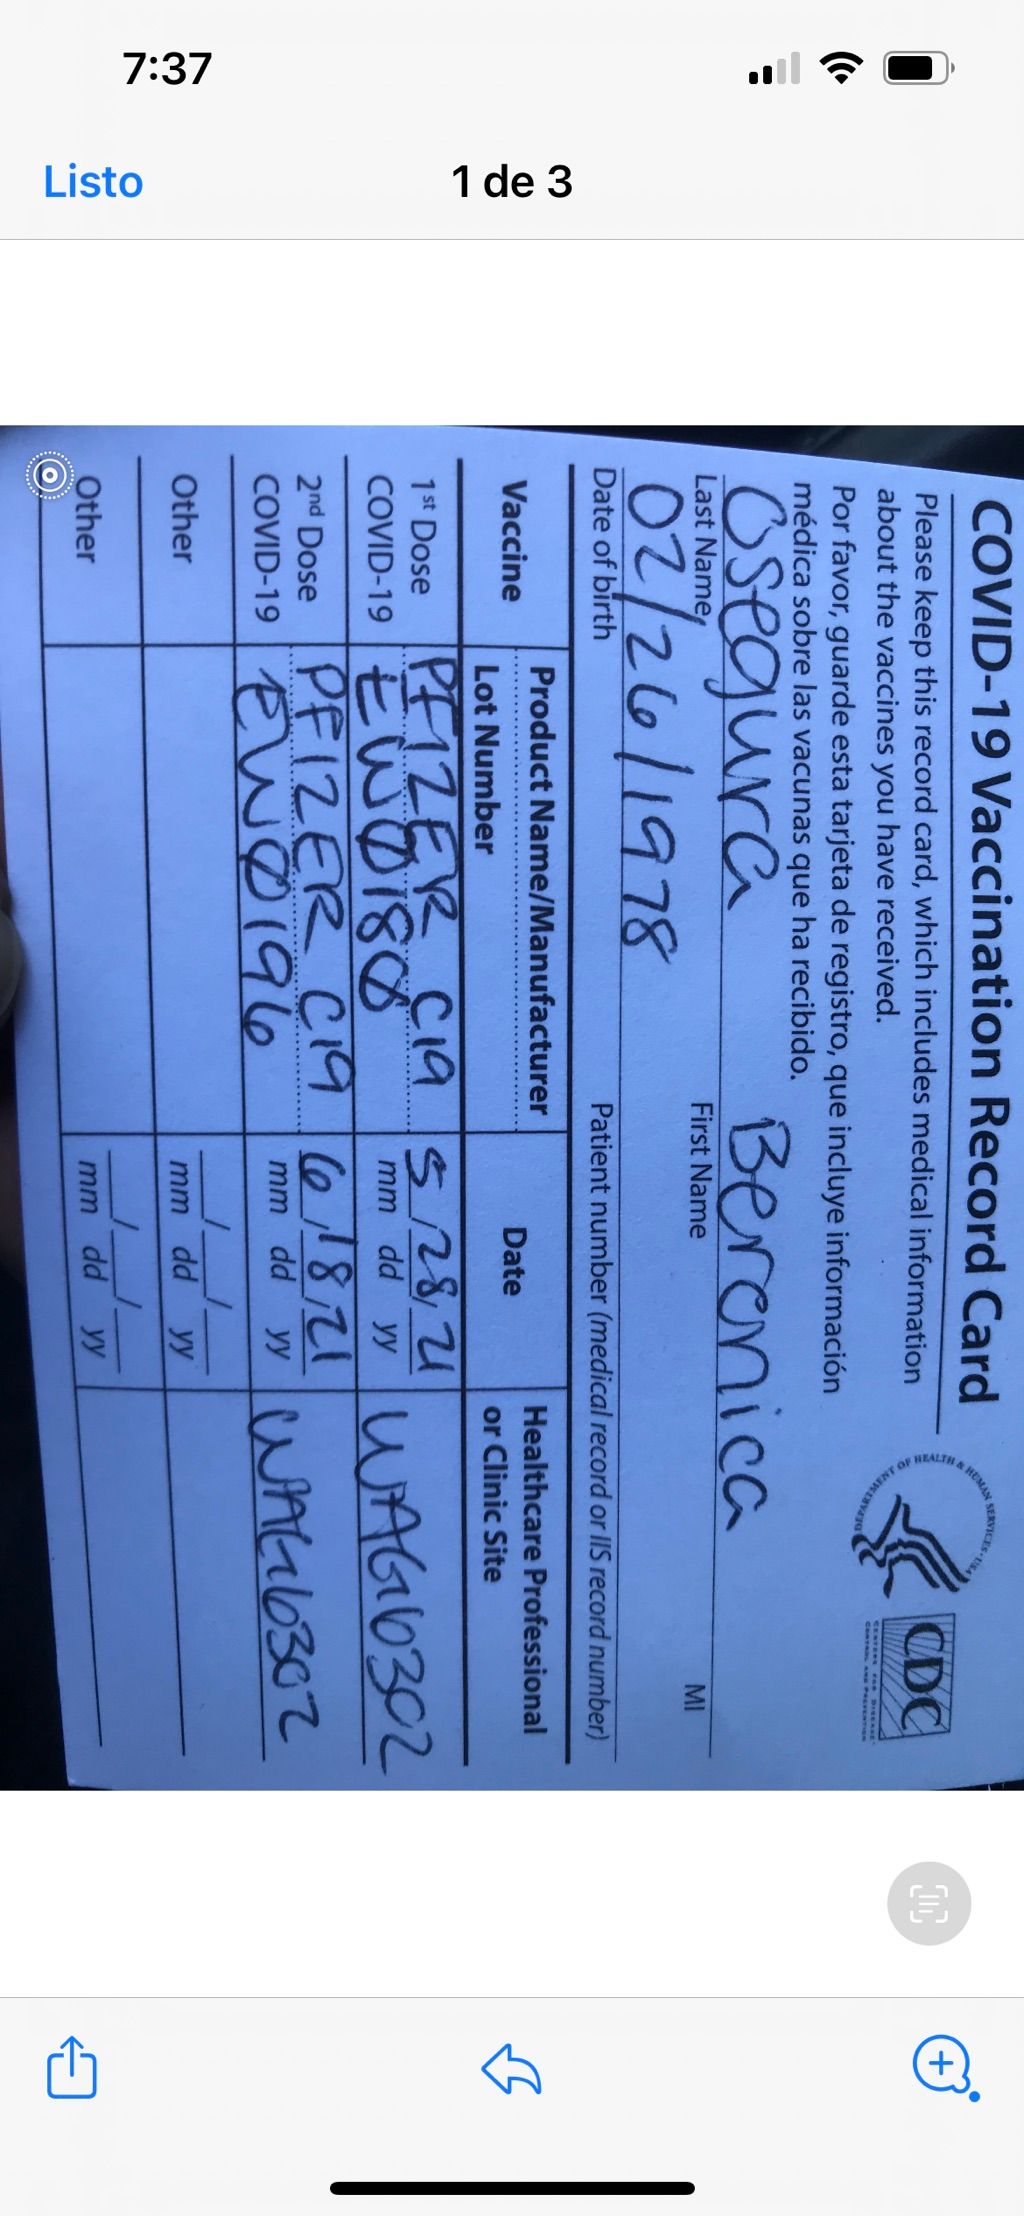 7:37
Listo
1 de 3
COVID-19 Vaccination Record Card
Please keep this record card, which includes medical information
about the vaccines you have received.
Por favor, guarde esta tarjeta de registro, que incluye información
médica sobre las vacunas que ha recibido.
DEPARTMENT OF HEALTH & HUMAN SERVICES • USA
CDC
CENTERS FOR DISEASE
CONTROL AND PREVENTION
Osegura Beronica
Last Name First Name MI
02/26/1978
Date of birth Patient number (medical record or IIS record number)
Vaccine Product Name/Manufacturer Date Healthcare Professional
Lot Number or Clinic Site
1st Dose PFIZER C19 5/28/21 WAG16302
COVID-19 EW0188 mm dd yy
2nd Dose PFIZER C19 6/18/21 WAG16302
COVID-19 EW0196 mm dd yy
Other __/__/__
mm dd yy
Other __/__/__
mm dd yy